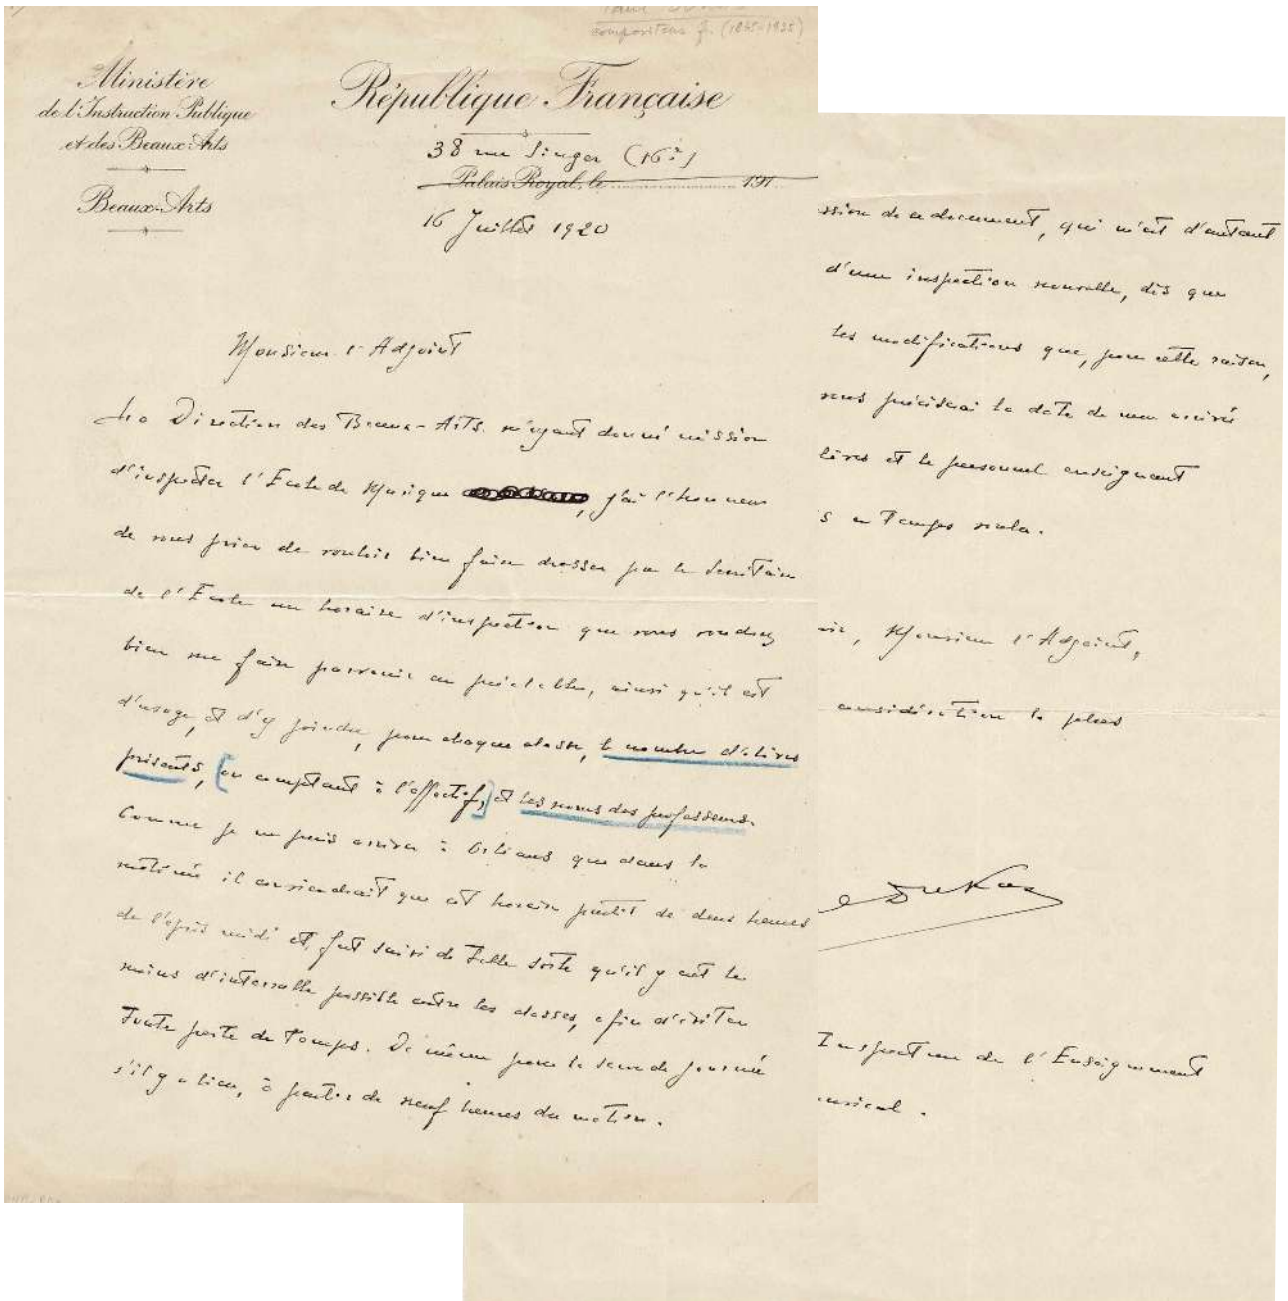 compositeur f. (1865-1935)
Ministère
de l'Instruction Publique
et des Beaux-Arts
Beaux-Arts
République Française
38 rue Singer (16e)
Palais Royal, le 191
16 Juillet 1920
Monsieur l'Adjoint
La Direction des Beaux-Arts m'ayant donné mission
d'inspecter l'Ecole de Musique , j'ai l'honneur
de vous prier de vouloir bien faire dresser par le Secrétaire
de l'Ecole un horaire d'inspection que vous voudrez
bien me faire parvenir au préalable, ainsi qu'il est
d'usage, et d'y joindre, pour chaque classe, le nombre d'élèves
présents, (en comptant à l'effectif,) et les noms des professeurs.
Comme je ne puis arriver à Orléans que dans la
matinée il conviendrait que cet horaire partît de deux heures
de l'après midi et fut suivi de telle sorte qu'il y ait le
moins d'intervalle possible entre les classes, afin d'éviter
toute perte de temps. De même pour la seconde journée
s'il y a lieu, à partir de neuf heures du matin.
ssion de ce document, qui m'est d'autant
d'une inspection nouvelle, dès que
les modifications que, pour cette raison,
vous préciserai la date de mon arrivée
lèves et le personnel enseignant
s en temps voulu.
, Monsieur l'Adjoint,
considération la plus
Dukas
Inspection de l'Enseignement
usical.